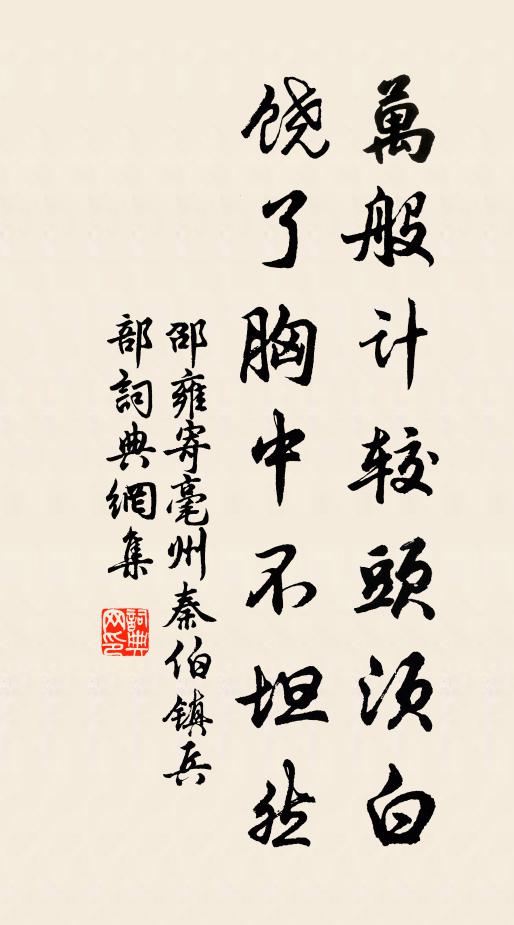 萬般计较頭须白
饶了胸中不坦然
邵雍寄毫州秦伯镇兵
部詞典網集
詞典
网印